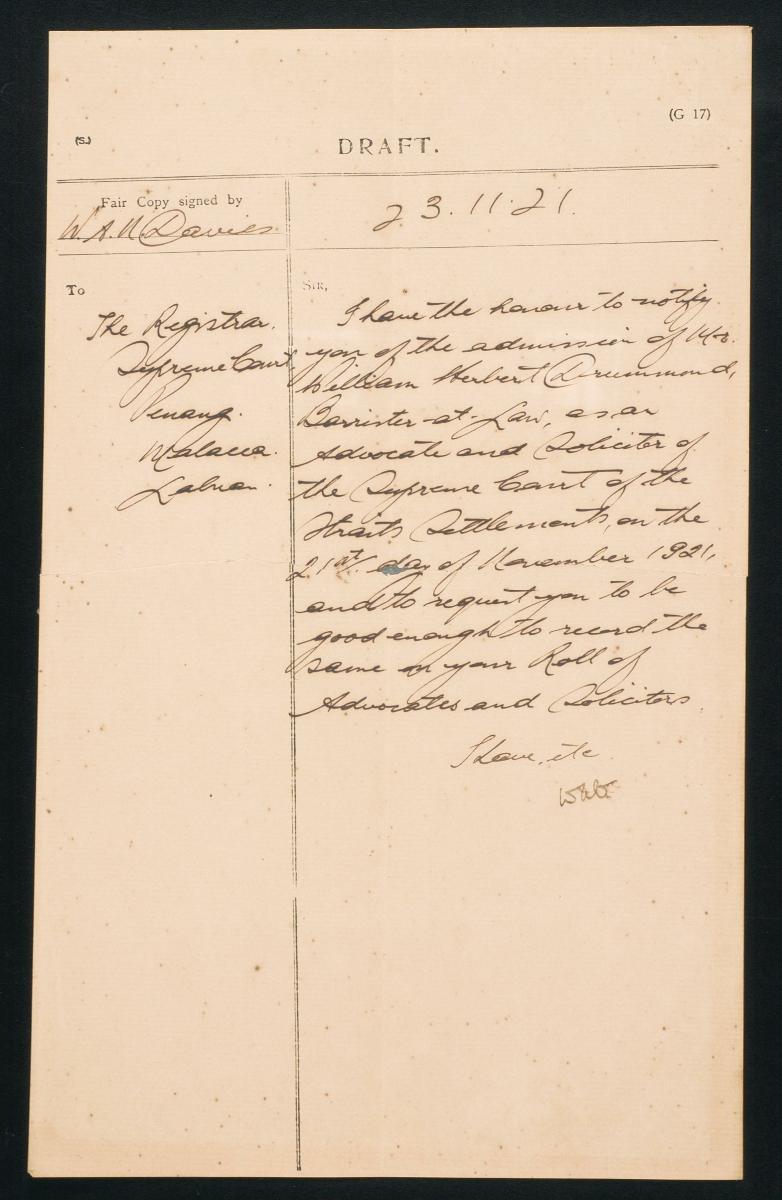 (G 17)
(S.)
DRAFT.
Fair Copy signed by
W. A. N. Davies
23.11.21.
To
The Registrar.
Supreme Court
Penang.
Malacca.
Labuan.
SIR,
I have the honour to notify
you of the admission of Mr.
William Herbert Drummond,
Barrister-at-Law, as an
Advocate and Solicitor of
the Supreme Court of the
Straits Settlements, on the
21st. day of November 1921,
and to request you to be
good enough to record the
same on your Roll of
Advocates and Solicitors.
I have, etc